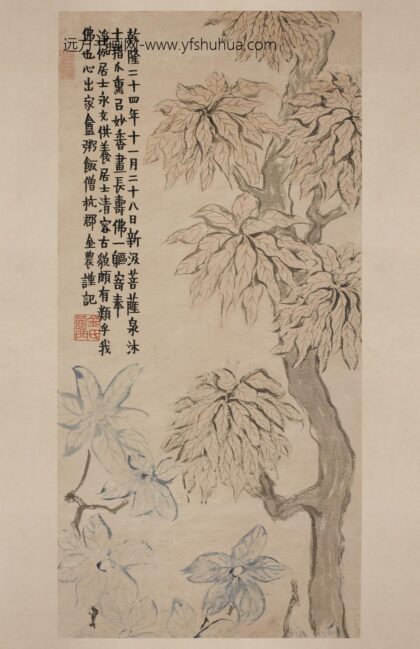 远方书画网-www.yfshuhua.com
乾隆二十四年十一月二十八日新汲菩薩泉沐
十指不熏百妙香畫長壽佛一軀寄奉
淨伽居士永充供養居士清容古貌頗有類乎我
佛也心出家盦粥飯僧杭郡金農謹記